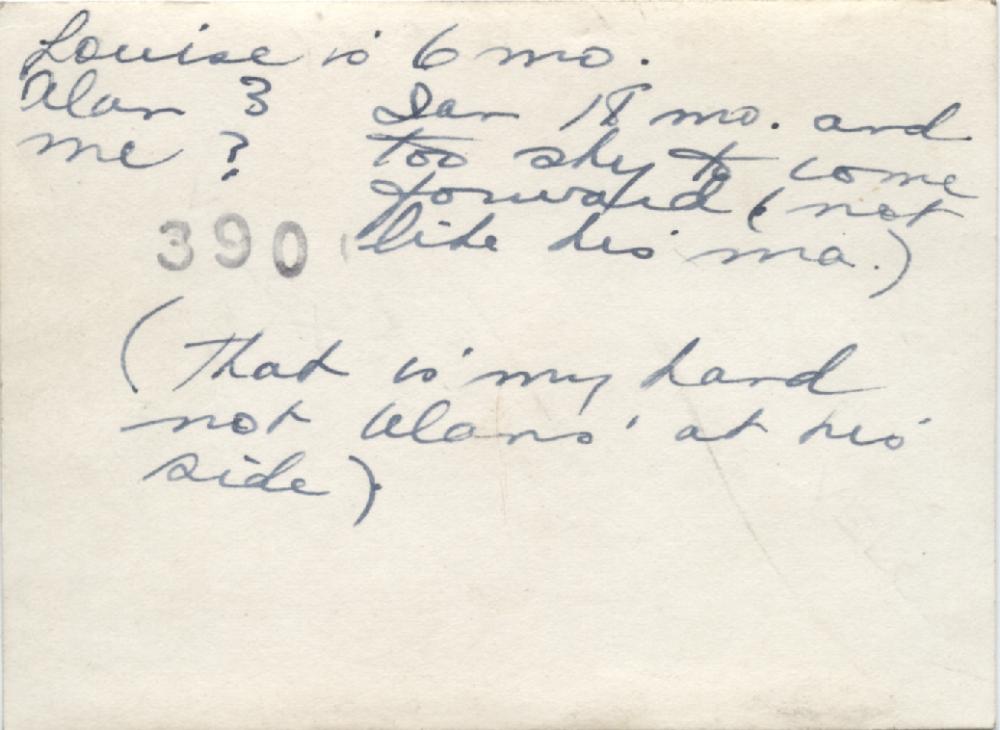 Louise is 6 mo.
Alan 3
me ?
Ian 18 mo. and
too shy to come
forward (not
like his ma.)
390
(That is my hand
not Alans' at his
side)